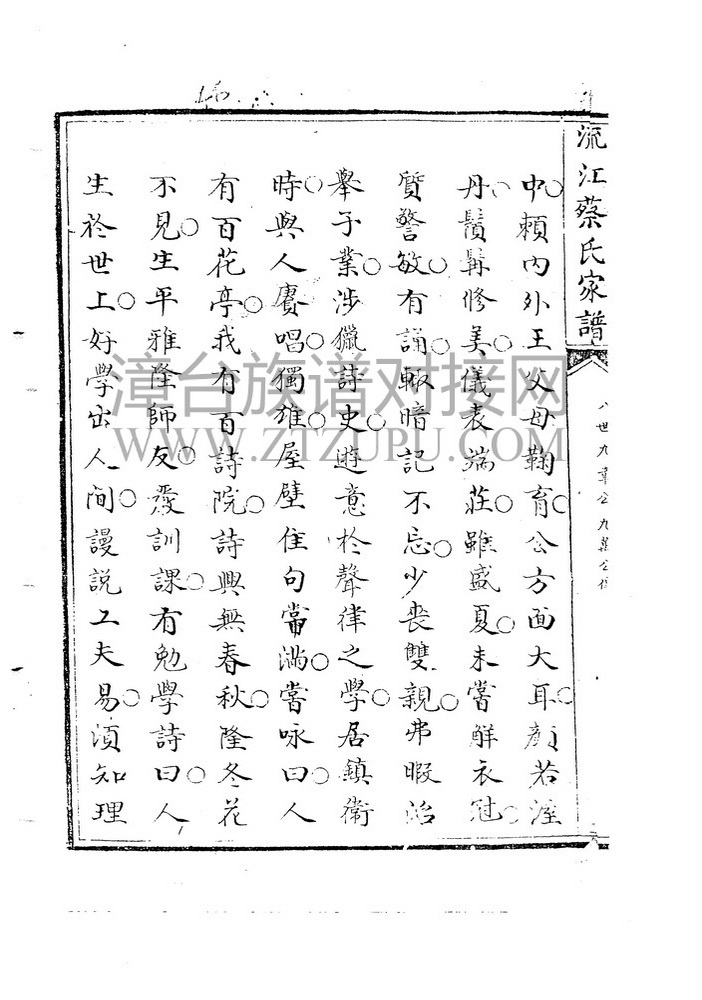 流江蔡氏家譜
八世九
中賴內外王父母鞠育公方面大耳顏若渥
丹鬚髯修美儀表端莊雖盛夏未嘗解衣冠
質警敏有誦輒暗記不忘少喪雙親弗暇治
舉子業涉獵詩史遊意於聲律之學居鎮衛
時與人賡唱獨雄屋壁佳句常滿嘗咏曰人
有百花亭我有百詩院詩興無春秋隆冬花
不見生平雅隆師友愛訓課有勉學詩曰人
生於世上好學出人間謾說工夫易須知理
漳台族谱对接网
WWW.ZTZUPU.COM